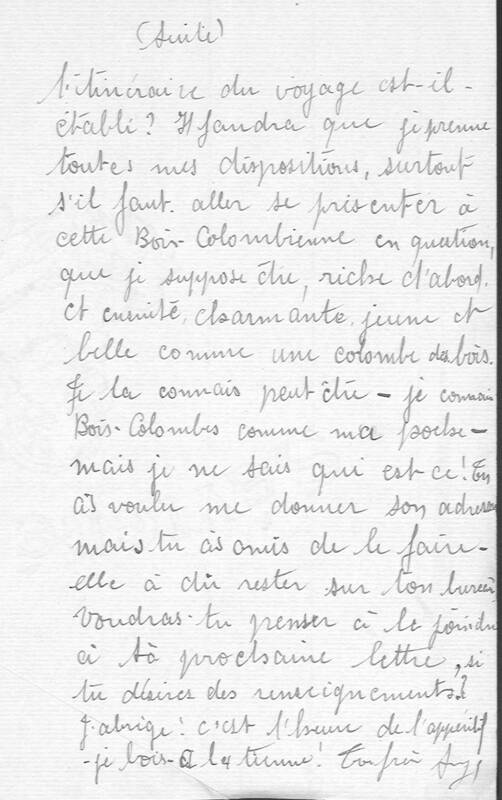 (Suite)
l'itinéraire du voyage est-il-
établi? Il faudra que je prenne
toutes mes dispositions, surtout
s'il faut aller se présenter à
cette Bois-Colombienne en question,
que je suppose être, riche d'abord.
Et ensuite, charmante, jeune et
belle comme une colombe des bois.
Je la connais peut être - je connais
Bois-Colombes comme ma poche-
mais je ne sais qui est-ce! Tu
as voulu me donner son adresse
mais tu às omis de le faire-
elle à dû rester sur ton bureau
voudras-tu penser à le joindre
à tà prochaine lettre, si
tu désires des renseignements?
J'abrège! c'est l'heure de l'appéritif
-je bois à la tienne! Ton frère